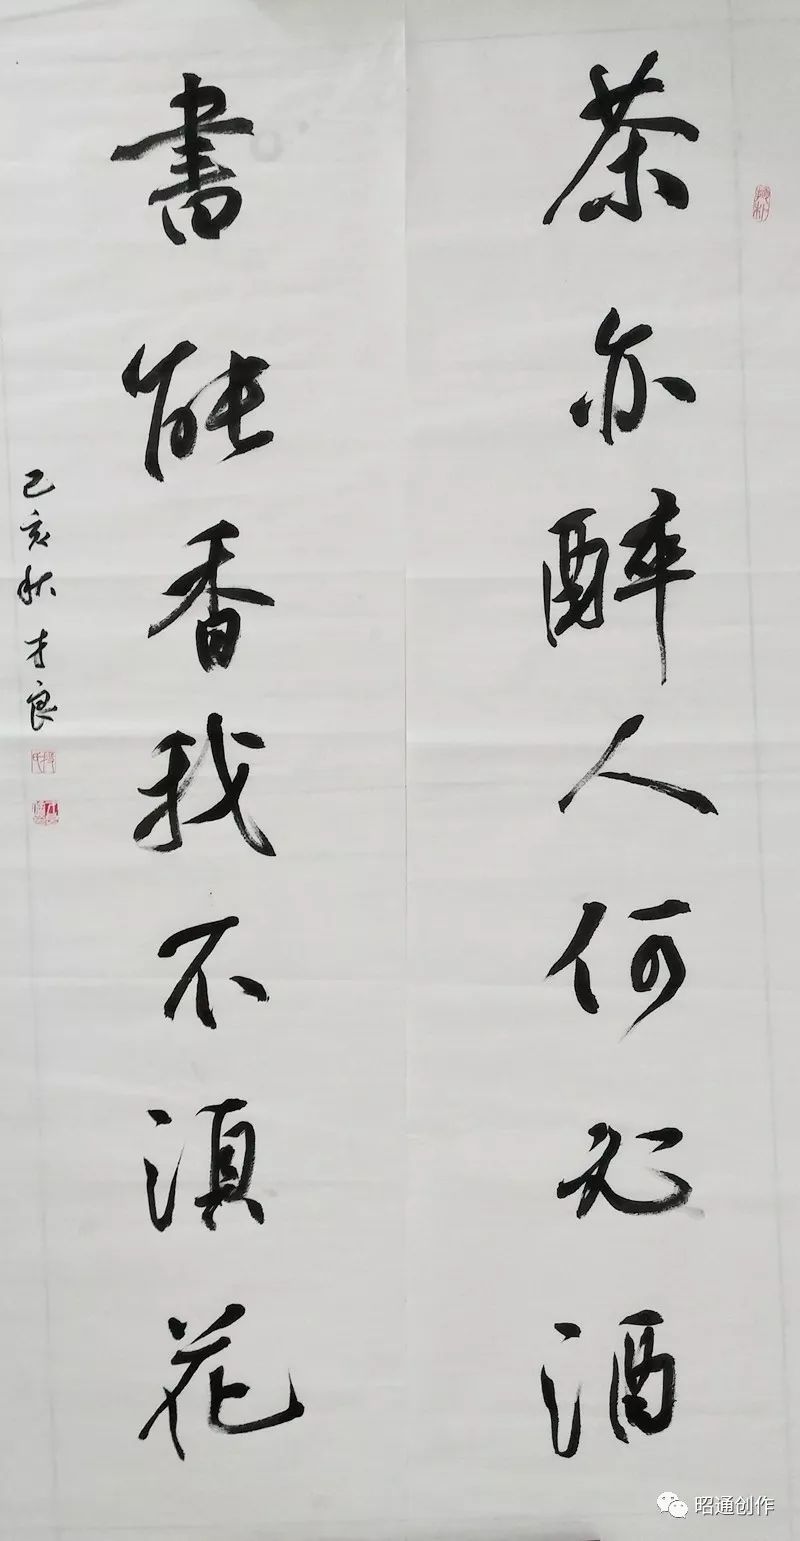 茶亦醉人何必酒
書能香我不湏花
己亥秋才良
昭通创作